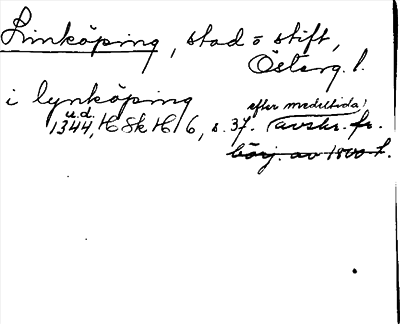 Linköping, stad o stift,
Österg. l.
i lynköping
u.d. efter medeltida!
1344, HSkH 6, s. 37. (avskr. fr.
börj. av 1800-t.